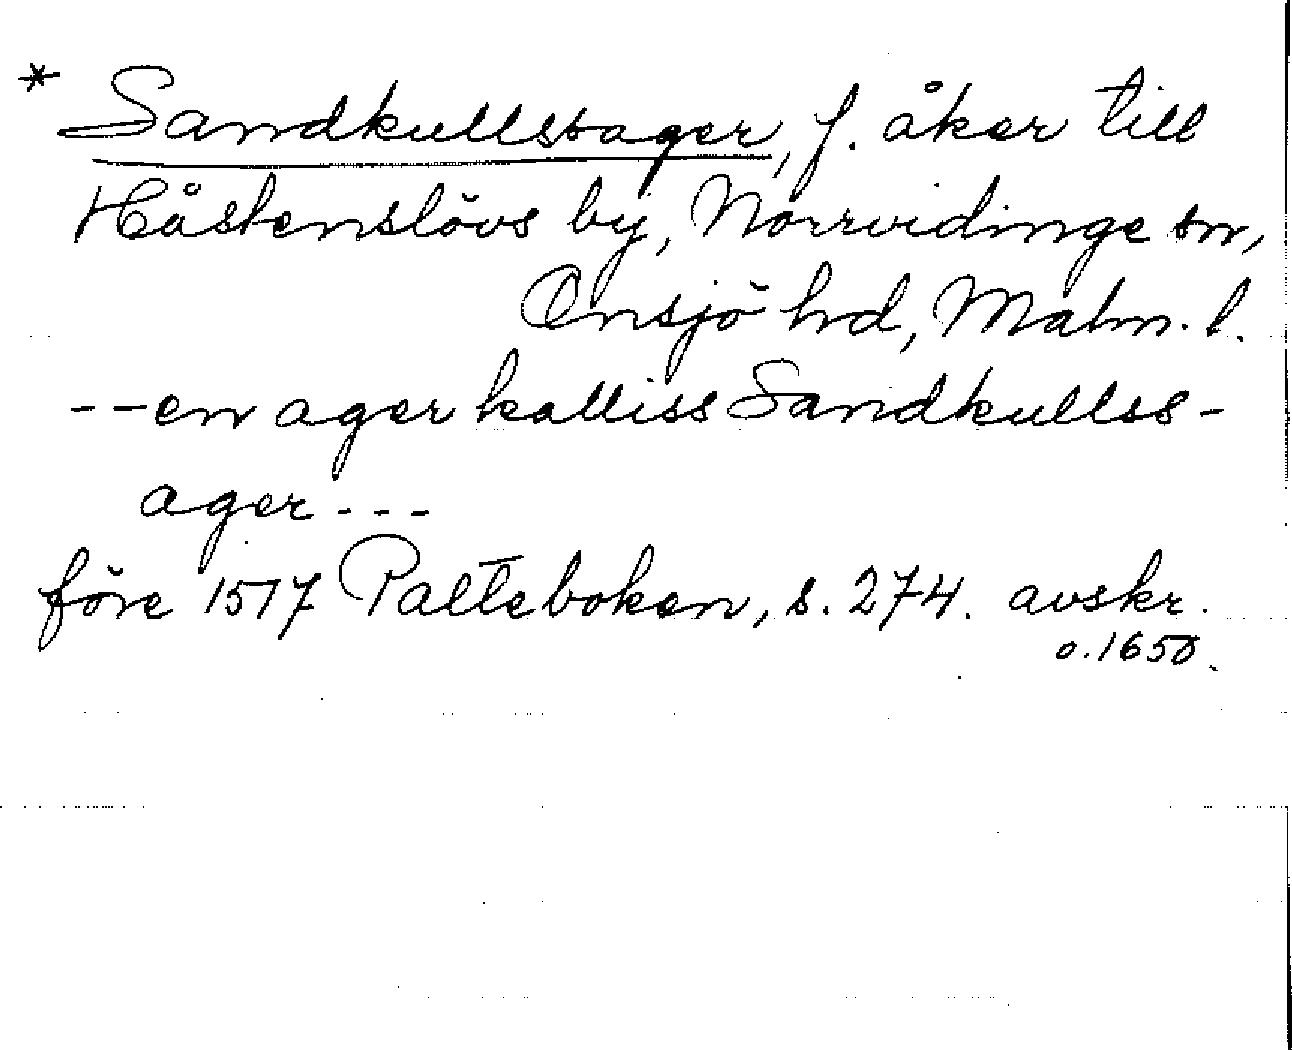 * Sandkullsager, f. åker till
Håstenslövs by, Norrvidinge sn,
Onsjö hd, Malm. l.
--en ager kalliss Sandkullss-
ager---
före 1517 Palteboken, s. 274. avskr.
o. 1650.